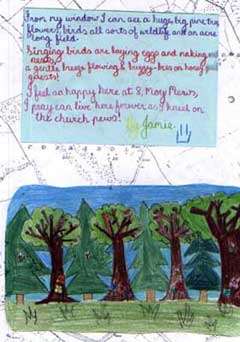 From my window I can see a huge, big, pine tree
flowers, birds all sorts of wildlife and an acre
long field.
Singing birds are laying eggs and making
nests,
a gentle breeze flowing & buzzy-bees on honey
quests!
I feel so happy here at 8, Mory Mews,
I pray can live here forever as I kneel on
the church pews!
By Jamie.